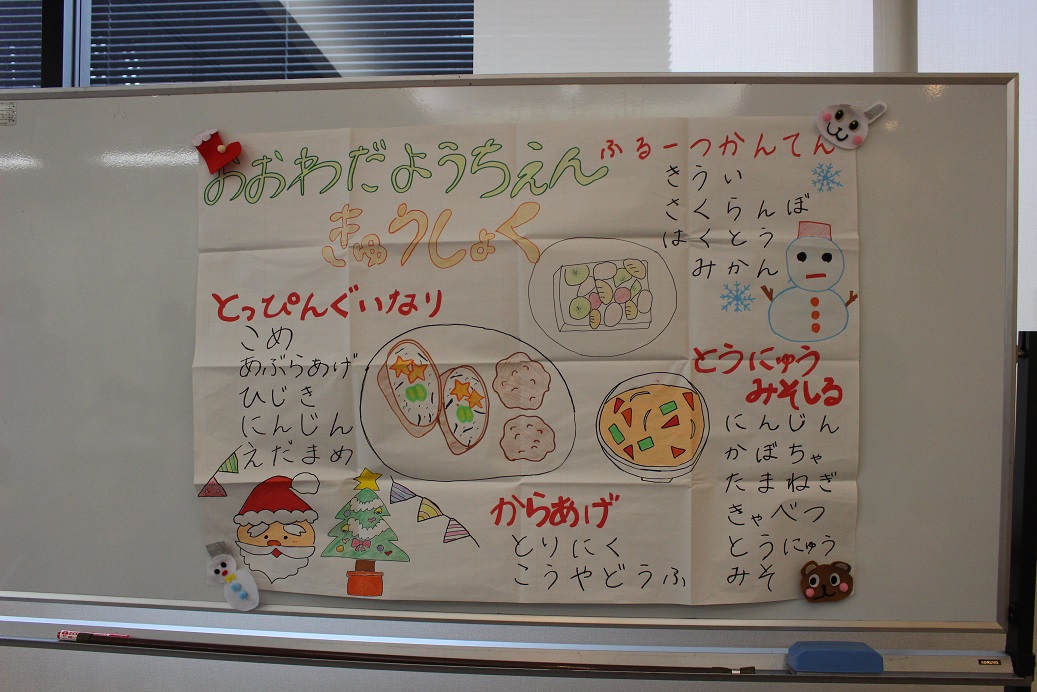 おおわだようちえん
きゅうしょく
ふるーつかんてん
きうい
さくらんぼ
はくとう
みかん
とっぴんぐいなり
こめ
あぶらあげ
ひじき
にんじん
えだまめ
とうにゅう
みそしる
にんじん
かぼちゃ
たまねぎ
きゃべつ
とうにゅう
みそ
からあげ
とりにく
こうやどうふ